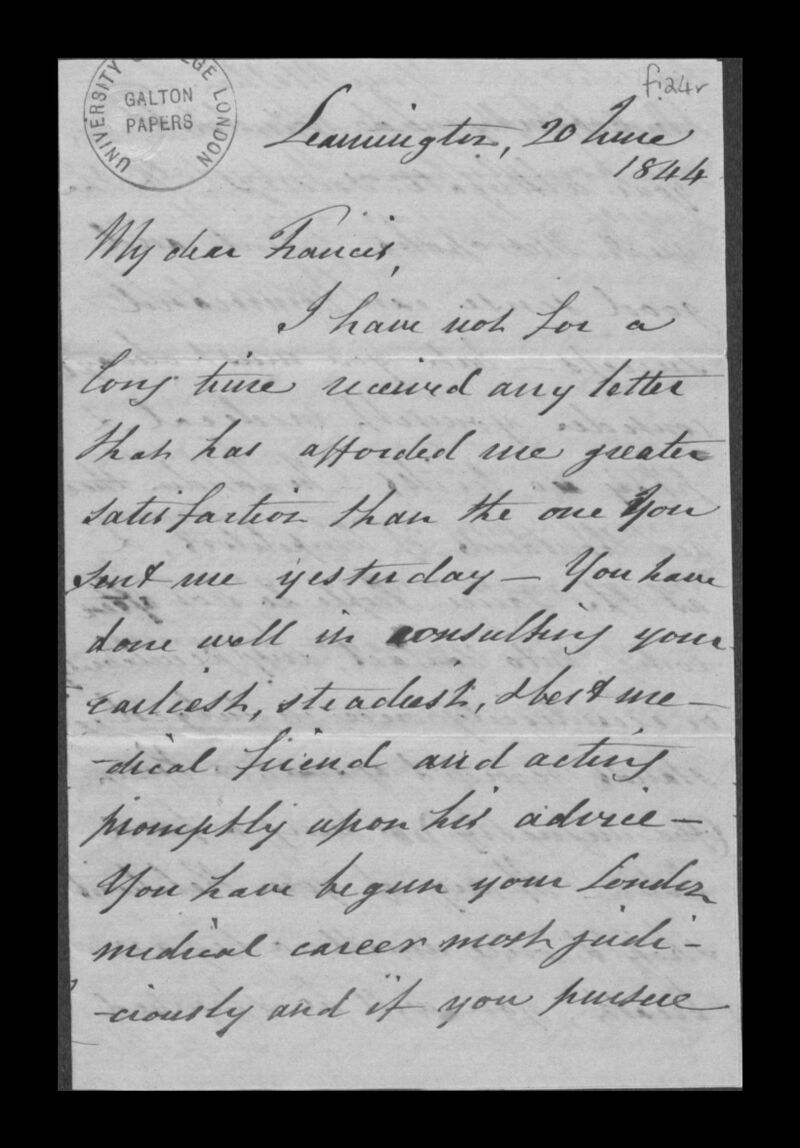 UNIVERSITY COLLEGE LONDON
GALTON
PAPERS
f.24r
Leamington, 20 June
1844
My dear Francis,
I have not for a
long time received any letter
that has afforded me greater
satisfaction than the one you
sent me yesterday — You have
done well in consulting your
earliest, steadiest, & best me-
-dical friend and acting
promptly upon his advice —
You have begun your London
medical career most judi-
-ciously and if you pursue